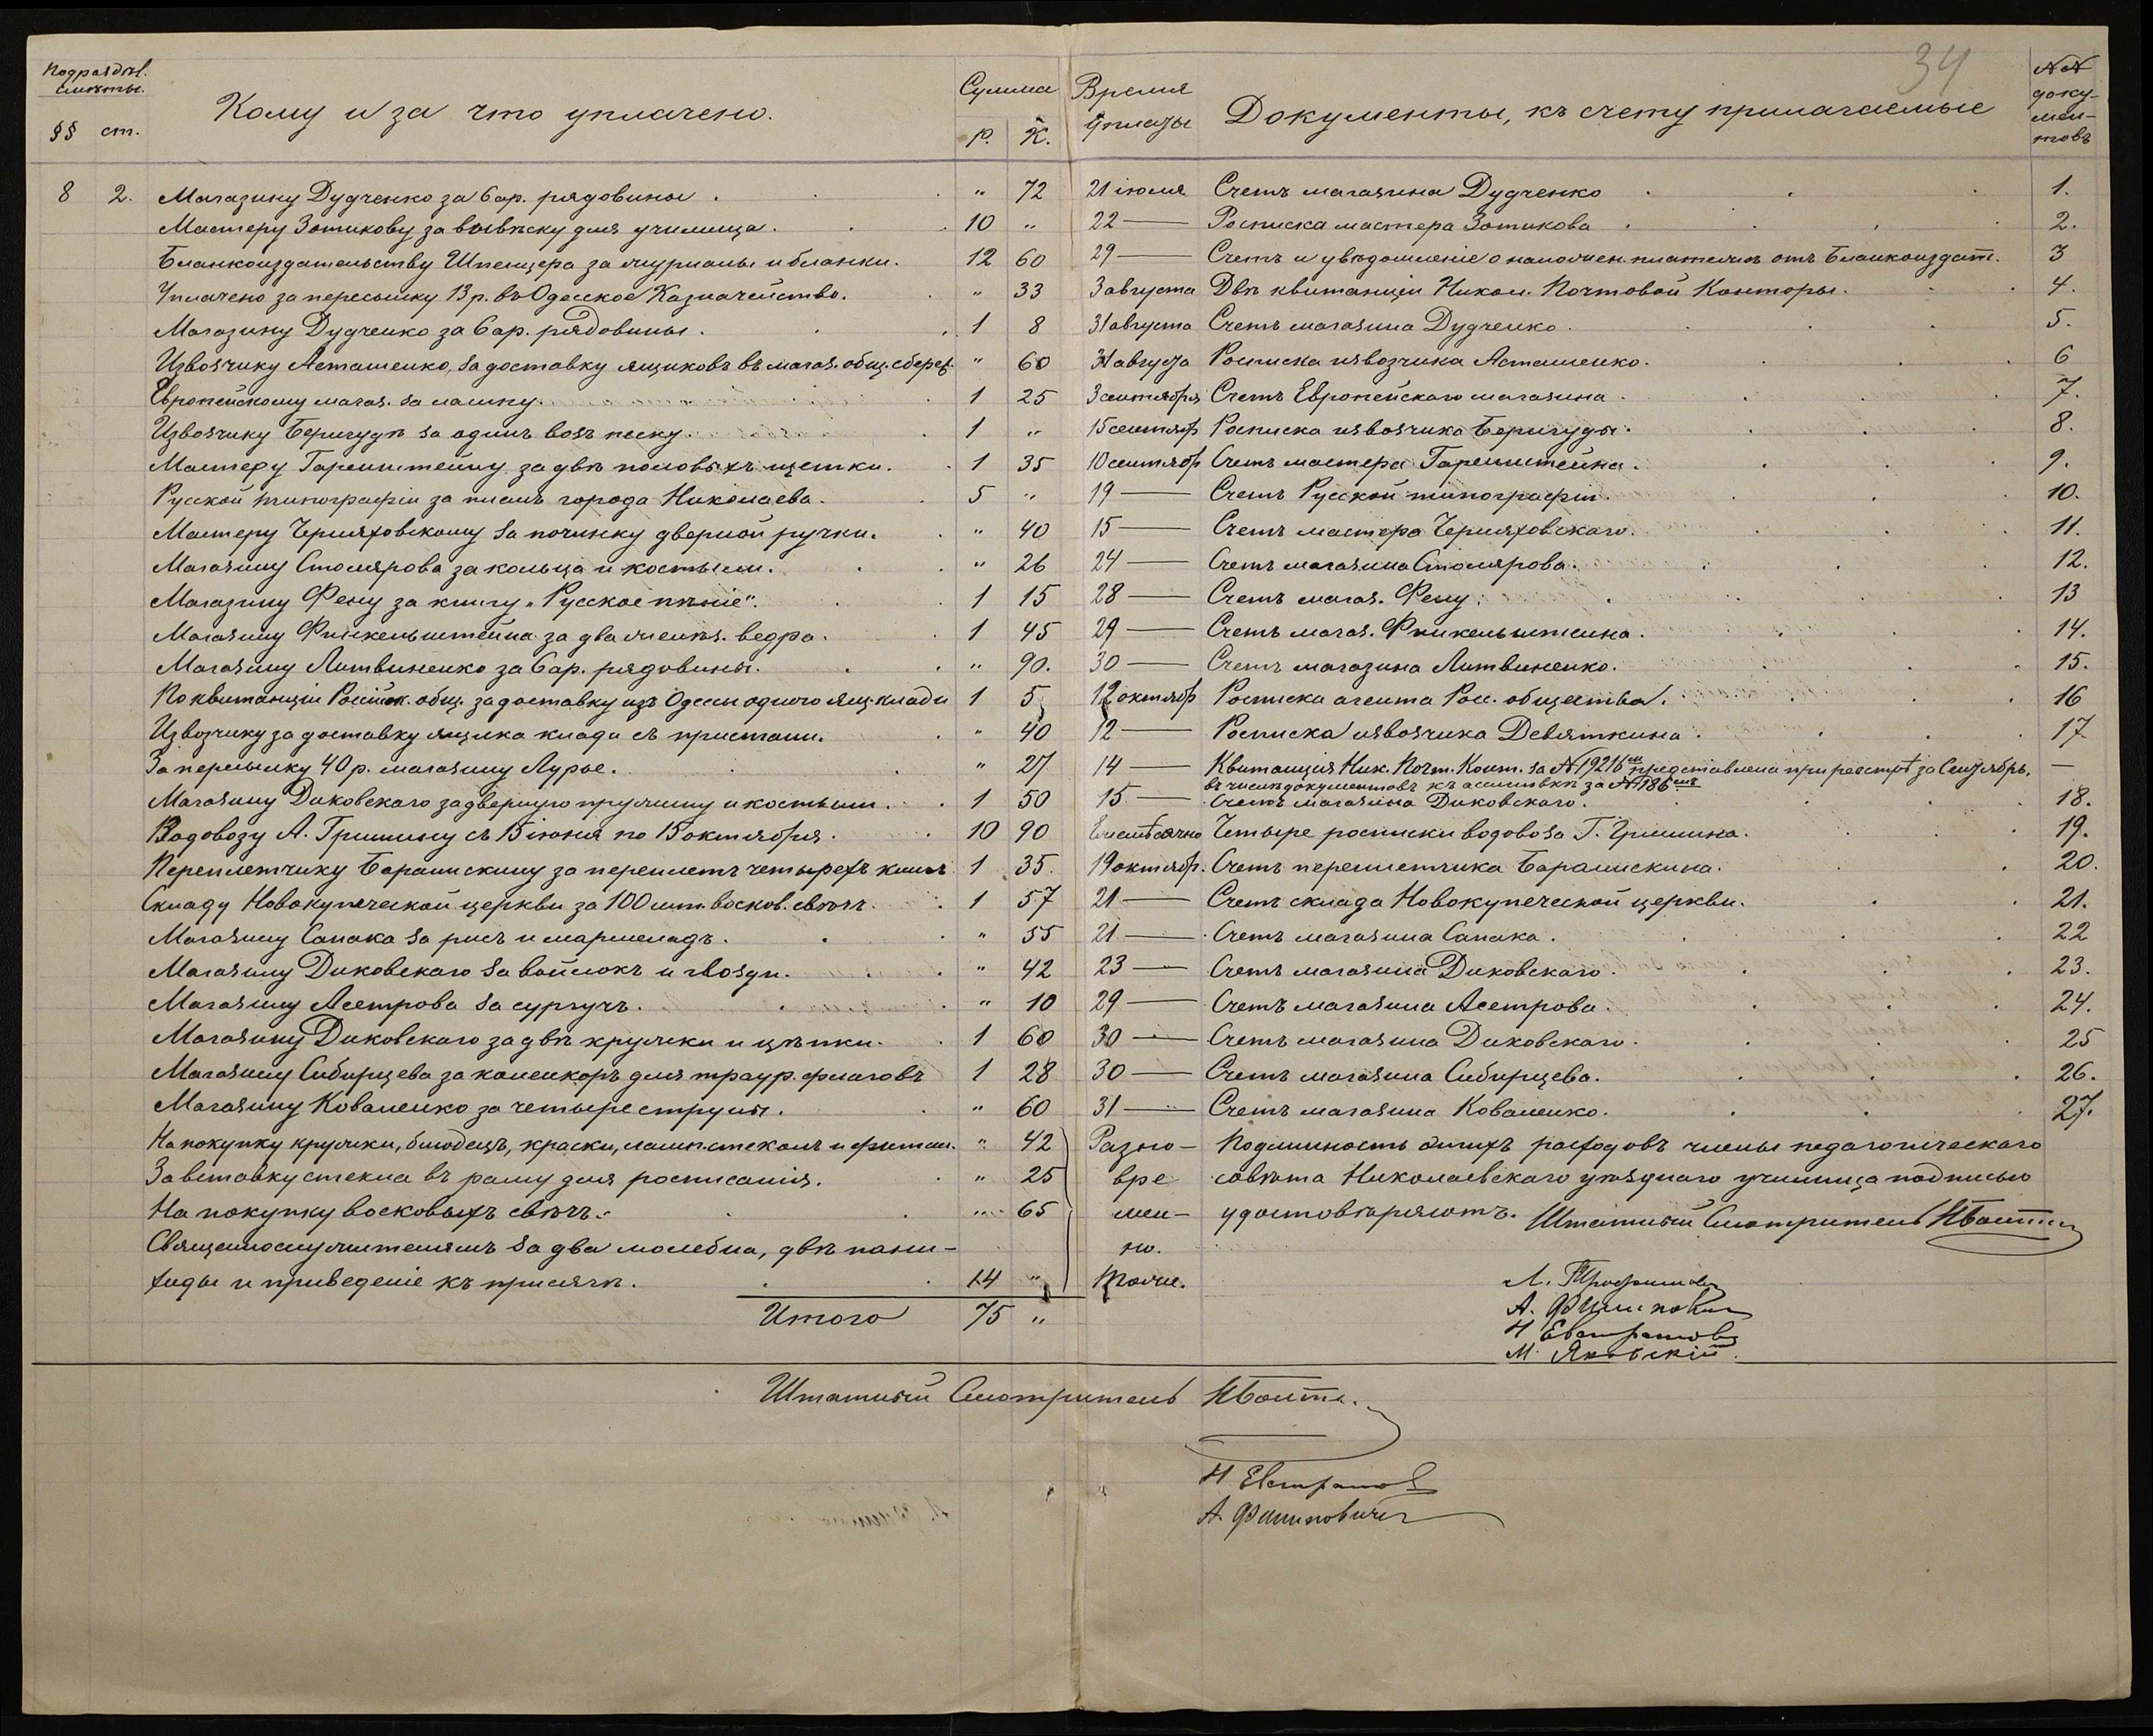 34
Подраздѣл. смѣты.
§§ ст.
Кому и за что уплачено.
Сумма
Р. К.
Время уплаты
Документы, къ счету прилагаемые
№№ документовъ
8 2. Магазину Дудченко за 6 ар. рядовины . " 72 21 іюля Счетъ магазина Дудченко 1.
Мастеру Зотикову за вывѣску для училища. 10 " 22 — Росписка мастера Зотикова 2.
Бланкоиздательству Шпенцера за журналы и бланки. 12 60 29 — Счетъ и увѣдомленіе о налоч. платежѣ отъ Бланкоиздат. 3
Уплачено за пересылку 13 р. въ Одесское Казначейство. " 33 3 августа Двѣ квитанціи Никол. Почтовой Конторы. 4.
Магазину Дудченко за 6 ар. рядовины. 1 8 31 августа Счетъ магазина Дудченко. 5.
Извозчику Асташенко, за доставку ящиковъ въ магаз. общ. сбереж. " 60 31 августа Росписка извозчика Асташенко. 6
Европейскому магаз. за лампу. 1 25 3 сентября Счетъ Европейскаго магазина. 7.
Извозчику Беригудѣ за одинъ возъ песку. 1 " 15 сентяб Росписка извозчика Беригуды. 8.
Мастеру Гаренштейну за двѣ половыхъ щетки. 1 35 10 сентябр Счетъ мастера Гаренштейна. 9.
Русской типографіи за планъ города Николаева. 5 " 19 — Счетъ Русской типографіи. 10.
Мастеру Черняховскому за починку дверной ручки. " 40 15 — Счетъ мастера Черняховскаго. 11.
Магазину Столярова за кольца и костыли. " 26 24 — Счетъ магазина Столярова. 12.
Магазину Фену за книгу „Русское пѣніе". 1 15 28 — Счетъ магаз. Фену. 13
Магазину Финкельштейна за два желѣз. ведра. 1 45 29 — Счетъ магаз. Финкельштейна. 14.
Магазину Литвиненко за 6 ар. рядовины. " 90. 30 — Счетъ магазина Литвиненко. 15.
По квитанціи Россійск. общ. за доставку изъ Одессы одного ящ. клади 1 5 12 октябр Росписка агента Рос. общества. 16
Извозчику за доставку ящика клади съ пристани. " 40 12 — Росписка извозчика Девяткина. 17
За пересылку 40 р. магазину Лурье. " 27 14 — Квитанція Ник. Почт. Конт. за № 19216 представлена при реестрѣ за Сентябрь,
въ числѣ документовъ къ ассигновкѣ за № 186 —
Магазину Диковскаго за дверную пружину и костыли. 1 50 15 — Счетъ магазина Диковскаго. 18.
Водовозу А. Гришину съ 15 іюня по 15 октября. 10 90 Ежемѣсячно Четыре росписки водовоза Г. Гришина. 19.
Переплетчику Баранискину за переплетъ четырехъ книгъ 1 35. 19 октябр. Счетъ переплетчика Баранискина. 20.
Складу Новокупеческой церкви за 100 шт. восков. свѣчъ. 1 57 21 — Счетъ склада Новокупеческой церкви. 21.
Магазину Сапака за рисъ и мармеладъ. " 55 21 — Счетъ магазина Сапака. 22
Магазину Диковскаго за войлокъ и гвозди. " 42 23 — Счетъ магазина Диковскаго. 23.
Магазину Асетрова за сургучъ. " 10 29 — Счетъ магазина Асетрова. 24.
Магазину Диковскаго за двѣ кружки и цѣпки. 1 60 30 — Счетъ магазина Диковскаго. 25
Магазину Сибирцева за коленкоръ для траур. флаговъ 1 28 30 — Счетъ магазина Сибирцева. 26.
Магазину Коваленко за четыре струны. " 60 31 — Счетъ магазина Коваленко. 27.
На покупку кружки, блюдецъ, краски, ламп. стеколъ и фитил. " 42 Разно- Подлинность этихъ расходовъ члены педагогическаго
За вставку стекла въ раму для росписанія. " 25 вре совѣта Николаевскаго уѣзднаго училища подписью
На покупку восковыхъ свѣчъ. " 65 мен- удостовѣряютъ. Штатный Смотритель
Священнослужителямъ за два молебна, двѣ пани- но.
хиды и приведеніе къ присягѣ. 14 " Тоже.
Л. Трофимовъ
Итого 75 "
А. Филиповичъ
Н Евстратовъ
М. Яновскій.
Штатный Смотритель
Н Евстратовъ
А. Филиповичъ